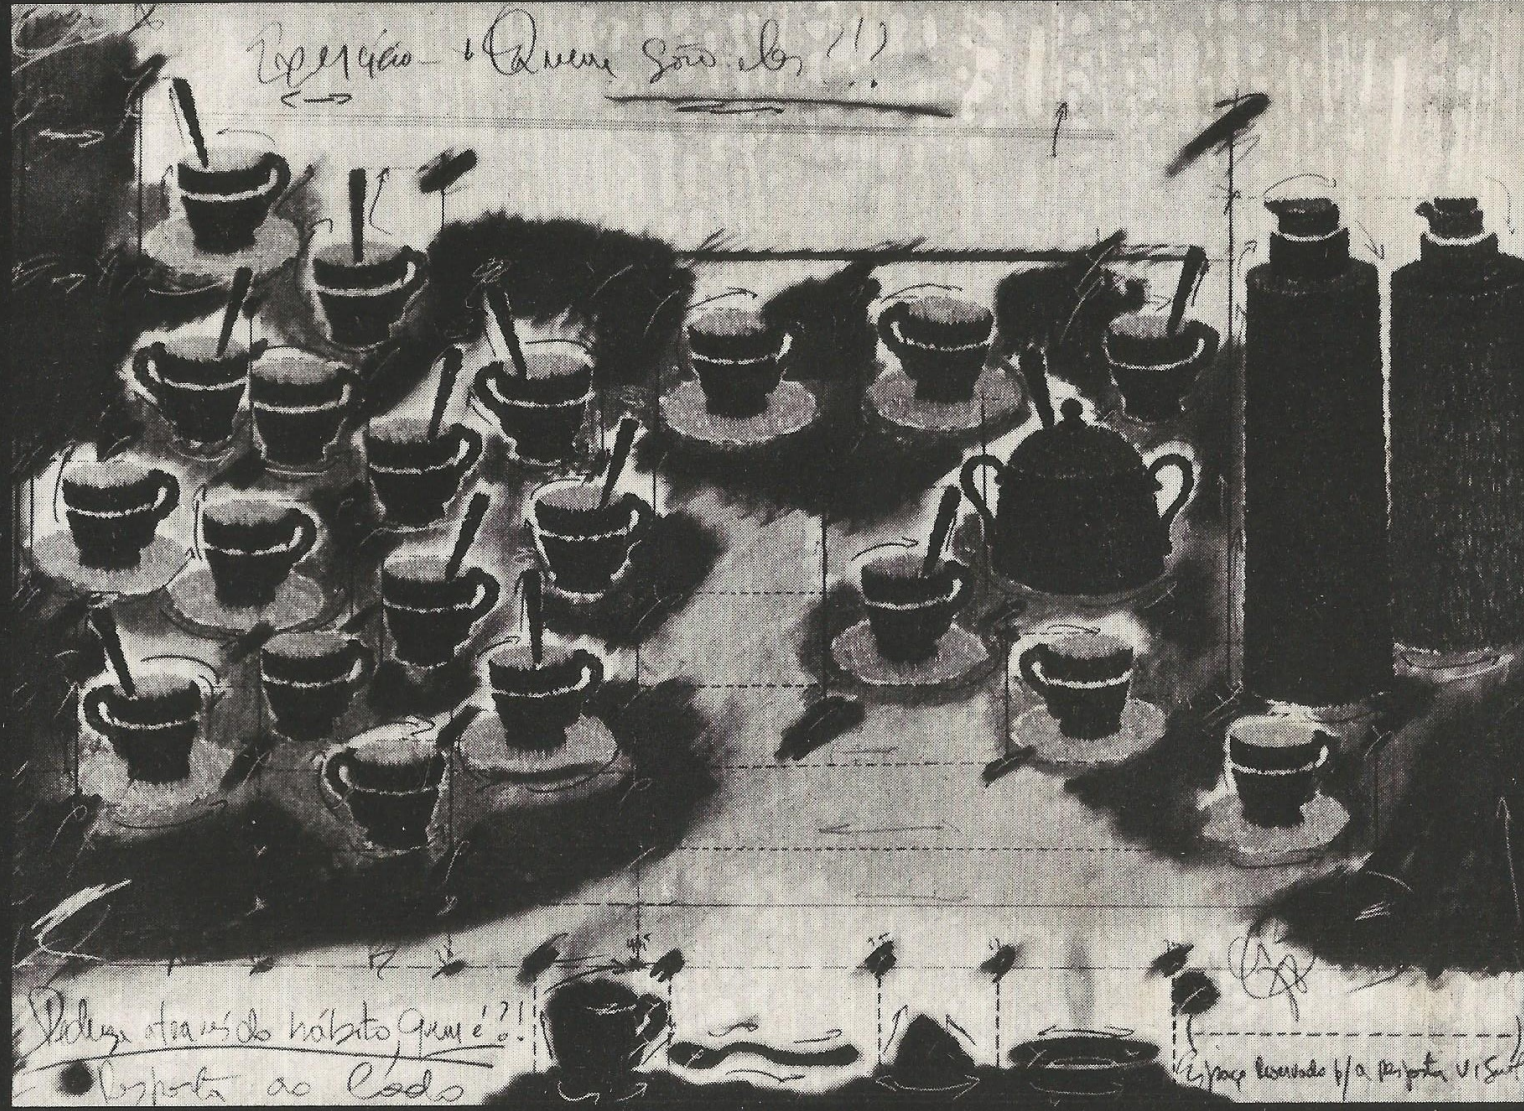 Exercício - Quem são eles?!?
Deduza através do hábito, quem é?!
Resposta ao lado
Espaço reservado p/a resposta visual